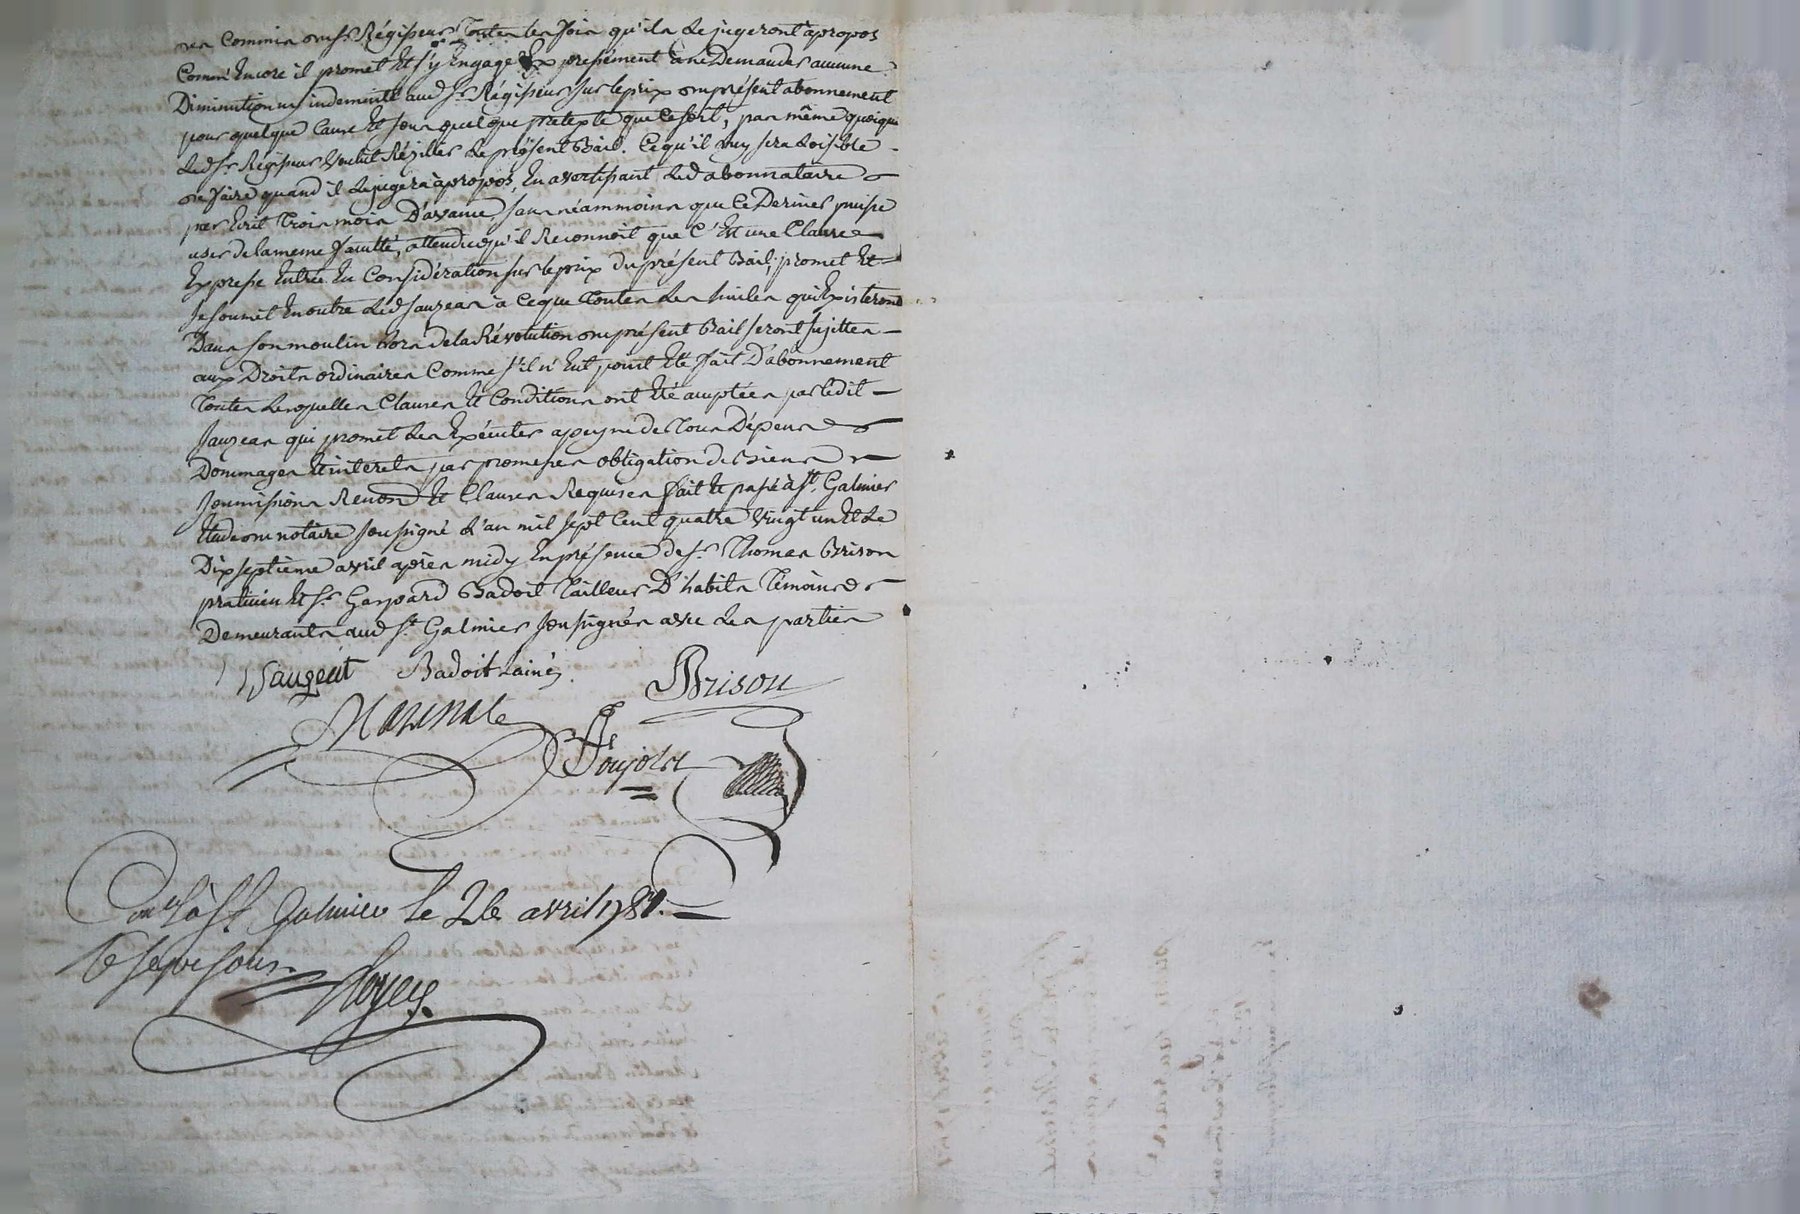 des Commis dud Sr. Régisseur Toutes les fois qu'ils le jugeront à propos
Comm' Encore il promet Et s'y Engage Expressément à ne Demander aucune
Diminution ny indemnité aud Sr. Régisseur sur le prix du présent abonnement
pour quelque Cause Et sous quelque pretexte que Ce soit, pas même quoique
Led Sr. Régisseur voulut Résilier Le présent Bail. Ce qu'il luy sera Loisible
de faire quand il Le jugera à propos, En avertissant Led abonnataire
par Ecrit Trois mois D'avance, sans néammoins que Ce Dernier puisse
user de la meme faculté, attendu qu'il Reconnoit que C'Est une Clause
Expresse Entrée En Considération sur le prix du présent Bail; promet Et
se soumet En outre Led Jauzeas à Ce que Toutes Les huiles qui Existeront
Dans son moulin Lors de la Révolution du présent Bail seront sujettes
aux Droits ordinaires Comme s'il n'Eut point Eté fait D'abonnement
Toutes Lesquelles Clauses Et Conditions ont Eté acceptées par Ledit
Jauzeas qui promet Les Exécuter a peyne de Tous Dépens
Dommages Et interets par promesses obligation de Biens
soumissions Renon Et Clauses Requises fait Et passé à St. Galmier
Etude du notaire soussigné L'an mil sept Cent quatre vingt un Et Le
Dix septième avril après midy En présence de Sr. Thomas Brison
praticien Et Sr. Gaspard Badoit Tailleur D'habits Témoins
Demeurants aud St. Galmier soussignés avec Les parties
Badoit Lainé
Brison
Pourolat
Con lé à St. Galmier le 26 avril 1781.